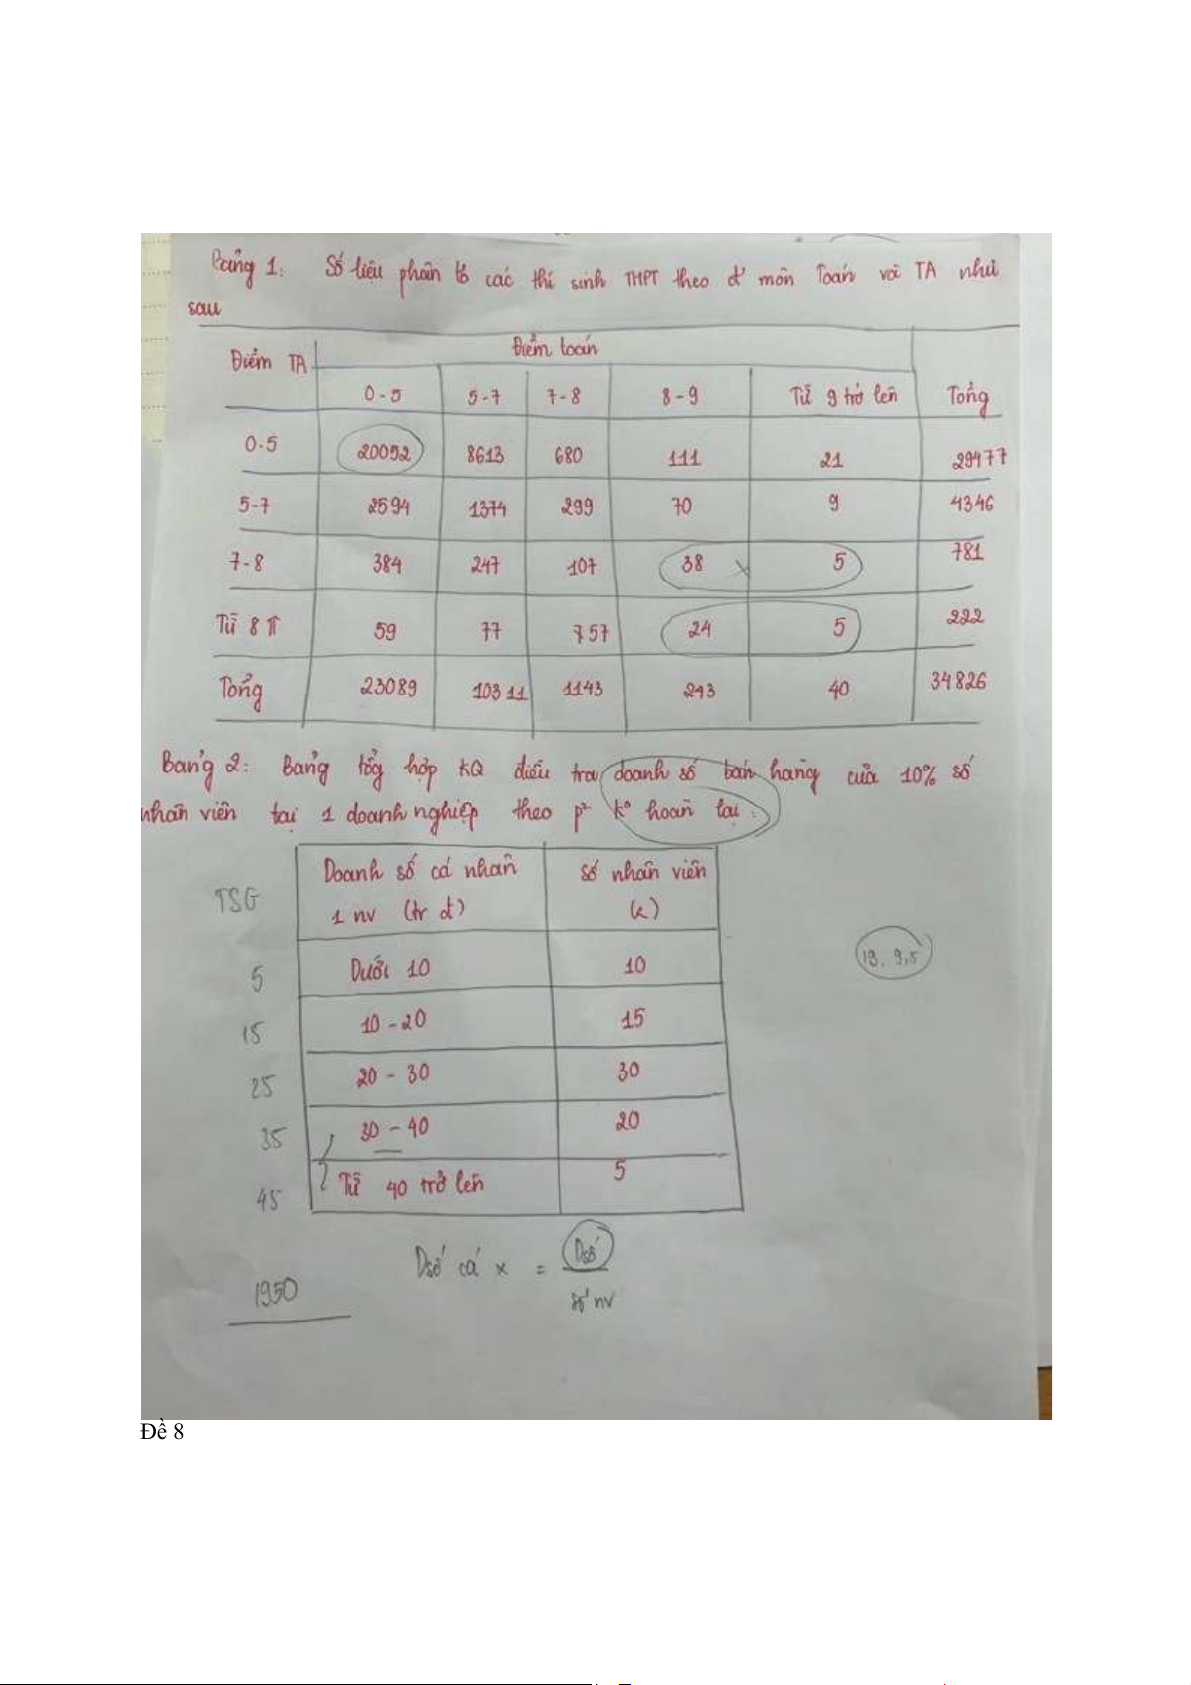 Bảng 1: Số liệu phân tổ các thí sinh THPT theo đ' môn Toán và TA như
sau
Điểm TA Điểm toán Tổng
0-5 5-7 7-8 8-9 Từ 9 trở lên
0.5 20052 8613 680 111 21 29477
5-7 2594 1374 299 70 9 4346
7-8 384 247 107 38 x 5 781
Từ 8 π 59 77 57 24 5 222
Tổng 23089 10311 1143 243 40 34826
Bảng 2: Bảng tổg hợp KQ điều tra doanh số bán hàng của 10% số
nhân viên tại 1 doanh nghiệp theo p² k° hoàn lại.
TSG Doanh số cá nhân Số nhân viên
1 nv (tr đ)
5 Dưới 10 10
19. 9,5
15 10-20 15
25 20-30 30
35 30-40 20
45 Từ 40 trở lên 5
Dsố cá x = Dsố
số nv
1950
Đề 8